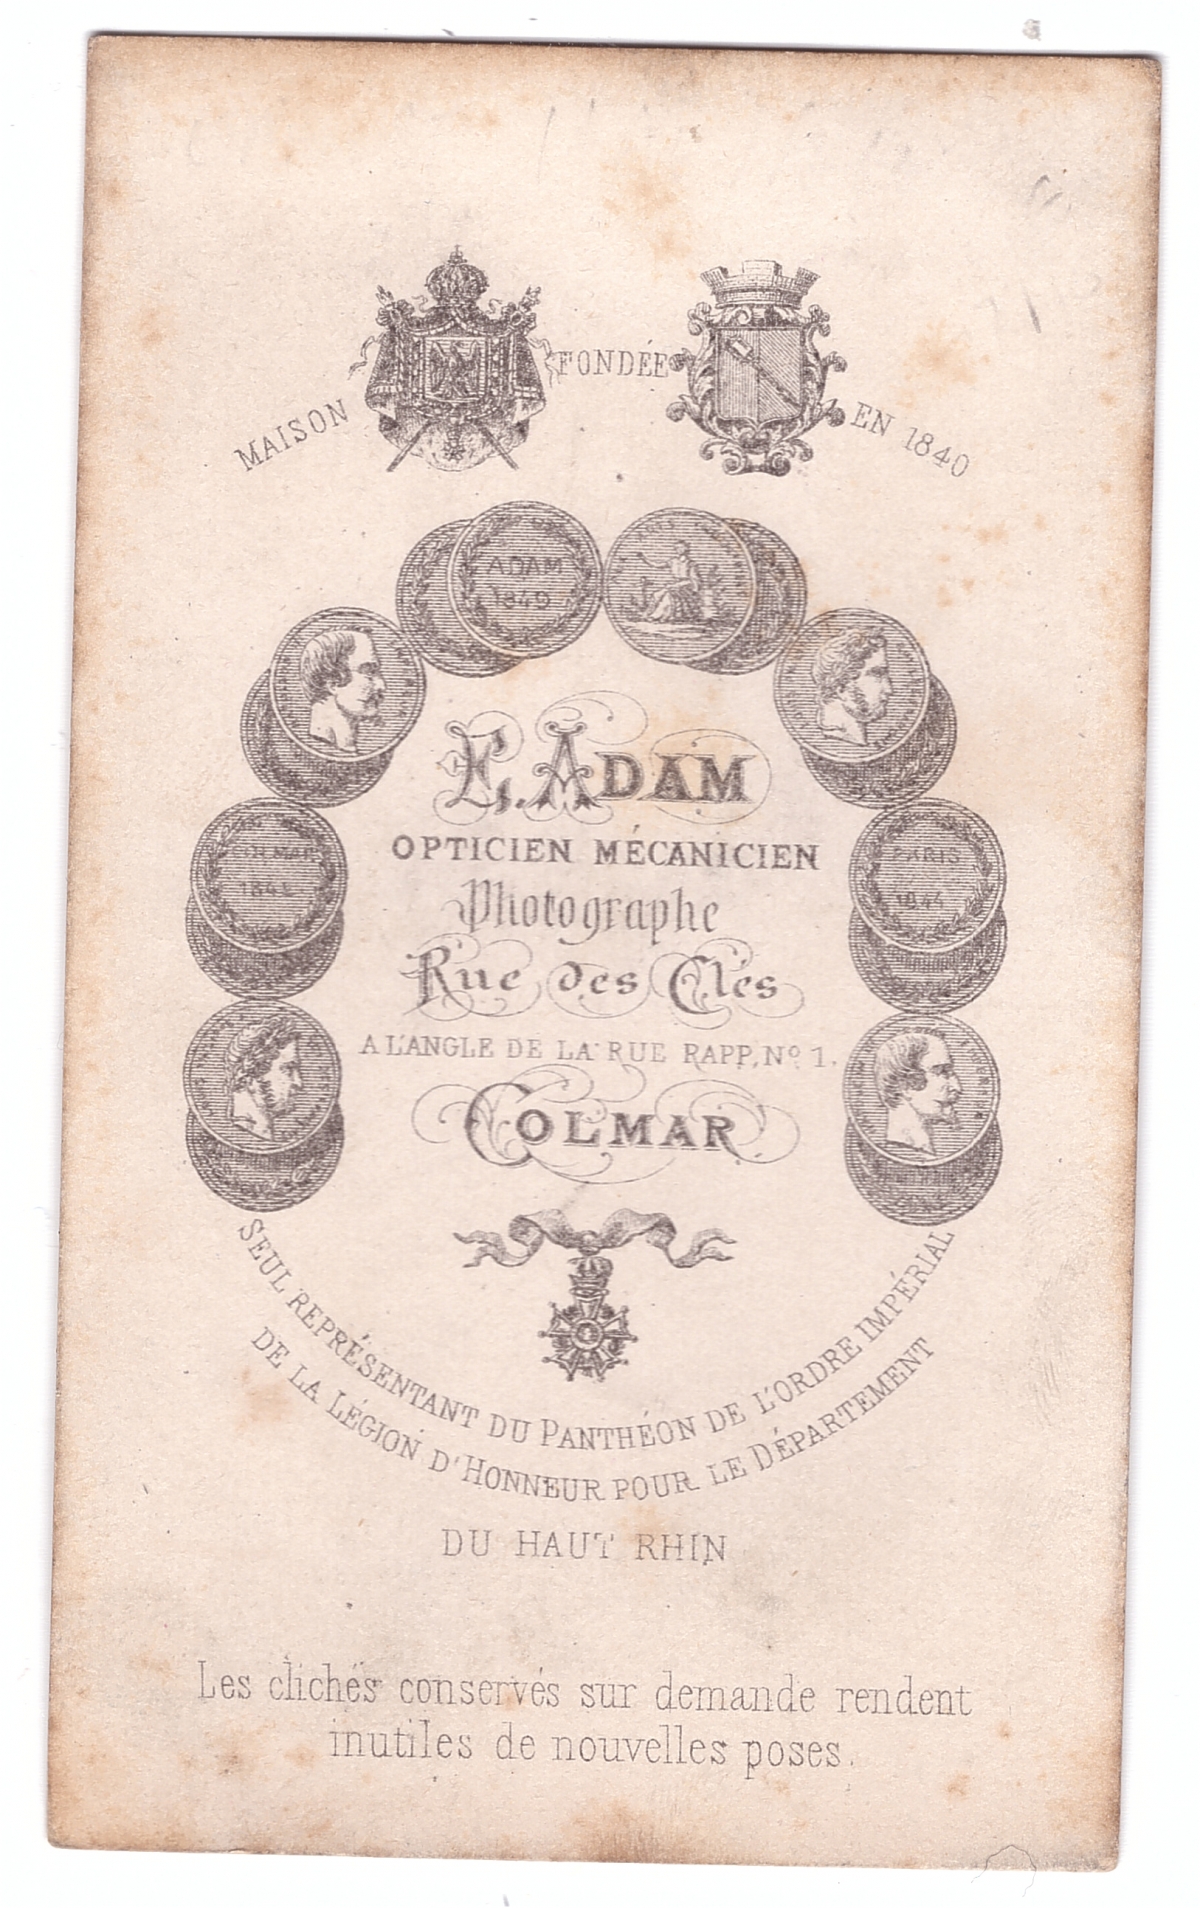 MAISON FONDÉE EN 1840
ADAM
1849
COLMAR
PARIS
1844
E. ADAM
OPTICIEN MÉCANICIEN
Photographe
Rue des Clés
A L'ANGLE DE LA RUE RAPP, No 1.
COLMAR
SEUL REPRÉSENTANT DU PANTHÉON DE L'ORDRE IMPÉRIAL
DE LA LÉGION D'HONNEUR POUR LE DÉPARTEMENT
DU HAUT RHIN
Les clichés conservés sur demande rendent
inutiles de nouvelles poses.